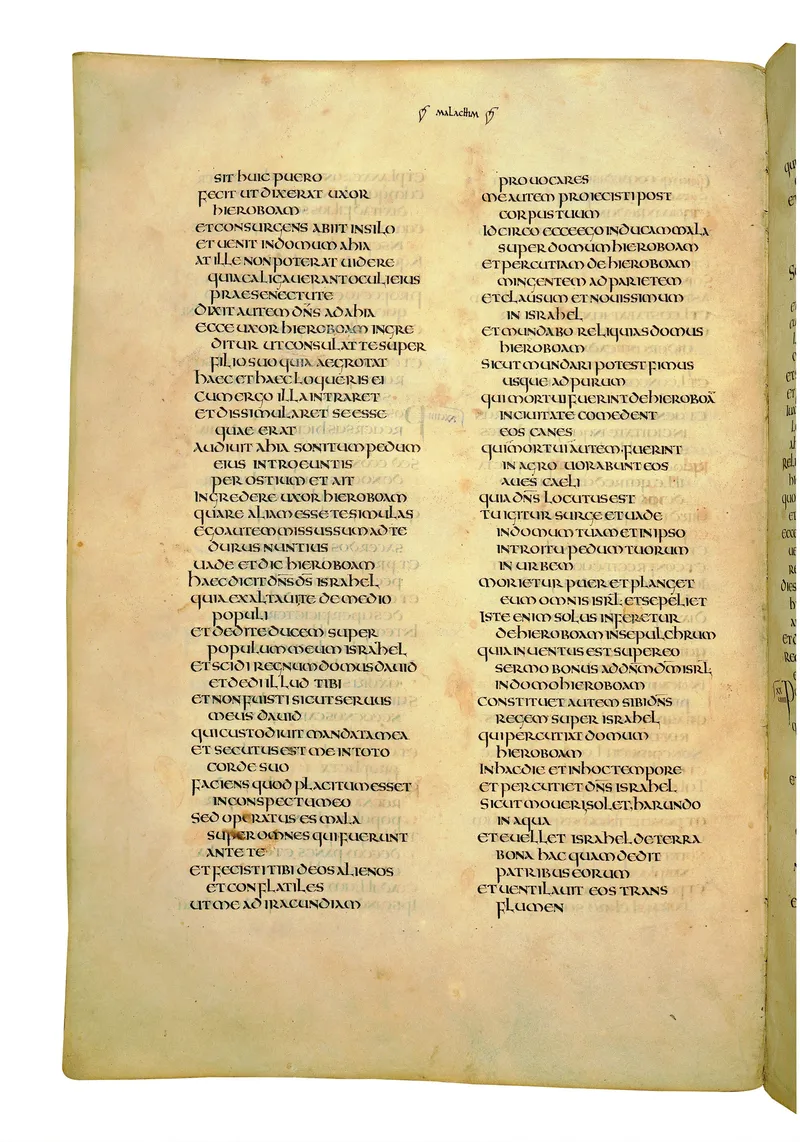 MALACHIM
SIT HUIC PUERO
FECIT UT DIXERAT UXOR
HIEROBOAM
ET CONSURGENS ABIIT IN SILO
ET UENIT IN DOMUM AHIA
AT ILLE NON POTERAT UIDERE
QUIA CALIGAUERANT OCULI EIUS
PRAE SENECTUTE
DIXIT AUTEM DN̅S AD AHIA
ECCE UXOR HIEROBOAM INGRE
DITUR UT CONSULAT TE SUPER
FILIO SUO QUIA AEGROTAT
HAEC ET HAEC LOQUERIS EI
CUM ERGO ILLA INTRARET
ET DISSIMULARET SE ESSE
QUAE ERAT
AUDIUIT AHIA SONITUM PEDUM
EIUS INTROEUNTIS
PER OSTIUM ET AIT
INGREDERE UXOR HIEROBOAM
QUARE ALIAM ESSE TE SIMULAS
EGO AUTEM MISSUS SUM AD TE
DURUS NUNTIUS
UADE ET DIC HIEROBOAM
HAEC DICIT DN̅S DS̅ ISRAHEL
QUIA EXALTAUI TE DE MEDIO
POPULI
ET DEDI TE DUCEM SUPER
POPULUM MEUM ISRAHEL
ET SCIDI REGNUM DOMUS DAUID
ET DEDI ILLUD TIBI
ET NON FUISTI SICUT SERUUS
MEUS DAUID
QUI CUSTODIUIT MANDATA MEA
ET SECUTUS EST ME IN TOTO
CORDE SUO
FACIENS QUOD PLACITUM ESSET
IN CONSPECTU MEO
SED OPERATUS ES MALA
SUPER OMNES QUI FUERUNT
ANTE TE
ET FECISTI TIBI DEOS ALIENOS
ET CONFLATILES
UT ME AD IRACUNDIAM
PROUOCARES
ME AUTEM PROIECISTI POST
CORPUS TUUM
IDCIRCO ECCE EGO INDUCAM MALA
SUPER DOMUM HIEROBOAM
ET PERCUTIAM DE HIEROBOAM
MINGENTEM AD PARIETEM
ET CLAUSUM ET NOUISSIMUM
IN ISRAHEL
ET MUNDABO RELIQUIAS DOMUS
HIEROBOAM
SICUT MUNDARI POTEST FIMUS
USQUE AD PURUM
QUI MORTUI FUERINT DE HIEROBOA̅
IN CIUITATE COMEDENT
EOS CANES
QUI MORTUI AUTEM FUERINT
IN AGRO UORABUNT EOS
AUES CAELI
QUIA DN̅S LOCUTUS EST
TU IGITUR SURGE ET UADE
IN DOMUM TUAM ET IN IPSO
INTROITU PEDUM TUORUM
IN URBEM
MORIETUR PUER ET PLANGET
EUM OMNIS ISRL̅ ET SEPELIET
ISTE ENIM SOLUS INFERETUR
DE HIEROBOAM IN SEPULCHRUM
QUIA INUENTUS EST SUPER EO
SERMO BONUS AD DN̅M DM̅ ISRL̅
IN DOMO HIEROBOAM
CONSTITUET AUTEM SIBI DN̅S
REGEM SUPER ISRAHEL
QUI PERCUTIAT DOMUM
HIEROBOAM
IN HAC DIE ET IN HOC TEMPORE
ET PERCUTIET DN̅S ISRAHEL
SICUT MOUERI SOLET HARUNDO
IN AQUA
ET EUELLET ISRAHEL DE TERRA
BONA HAC QUAM DEDIT
PATRIBUS EORUM
ET UENTILAUIT EOS TRANS
FLUMEN